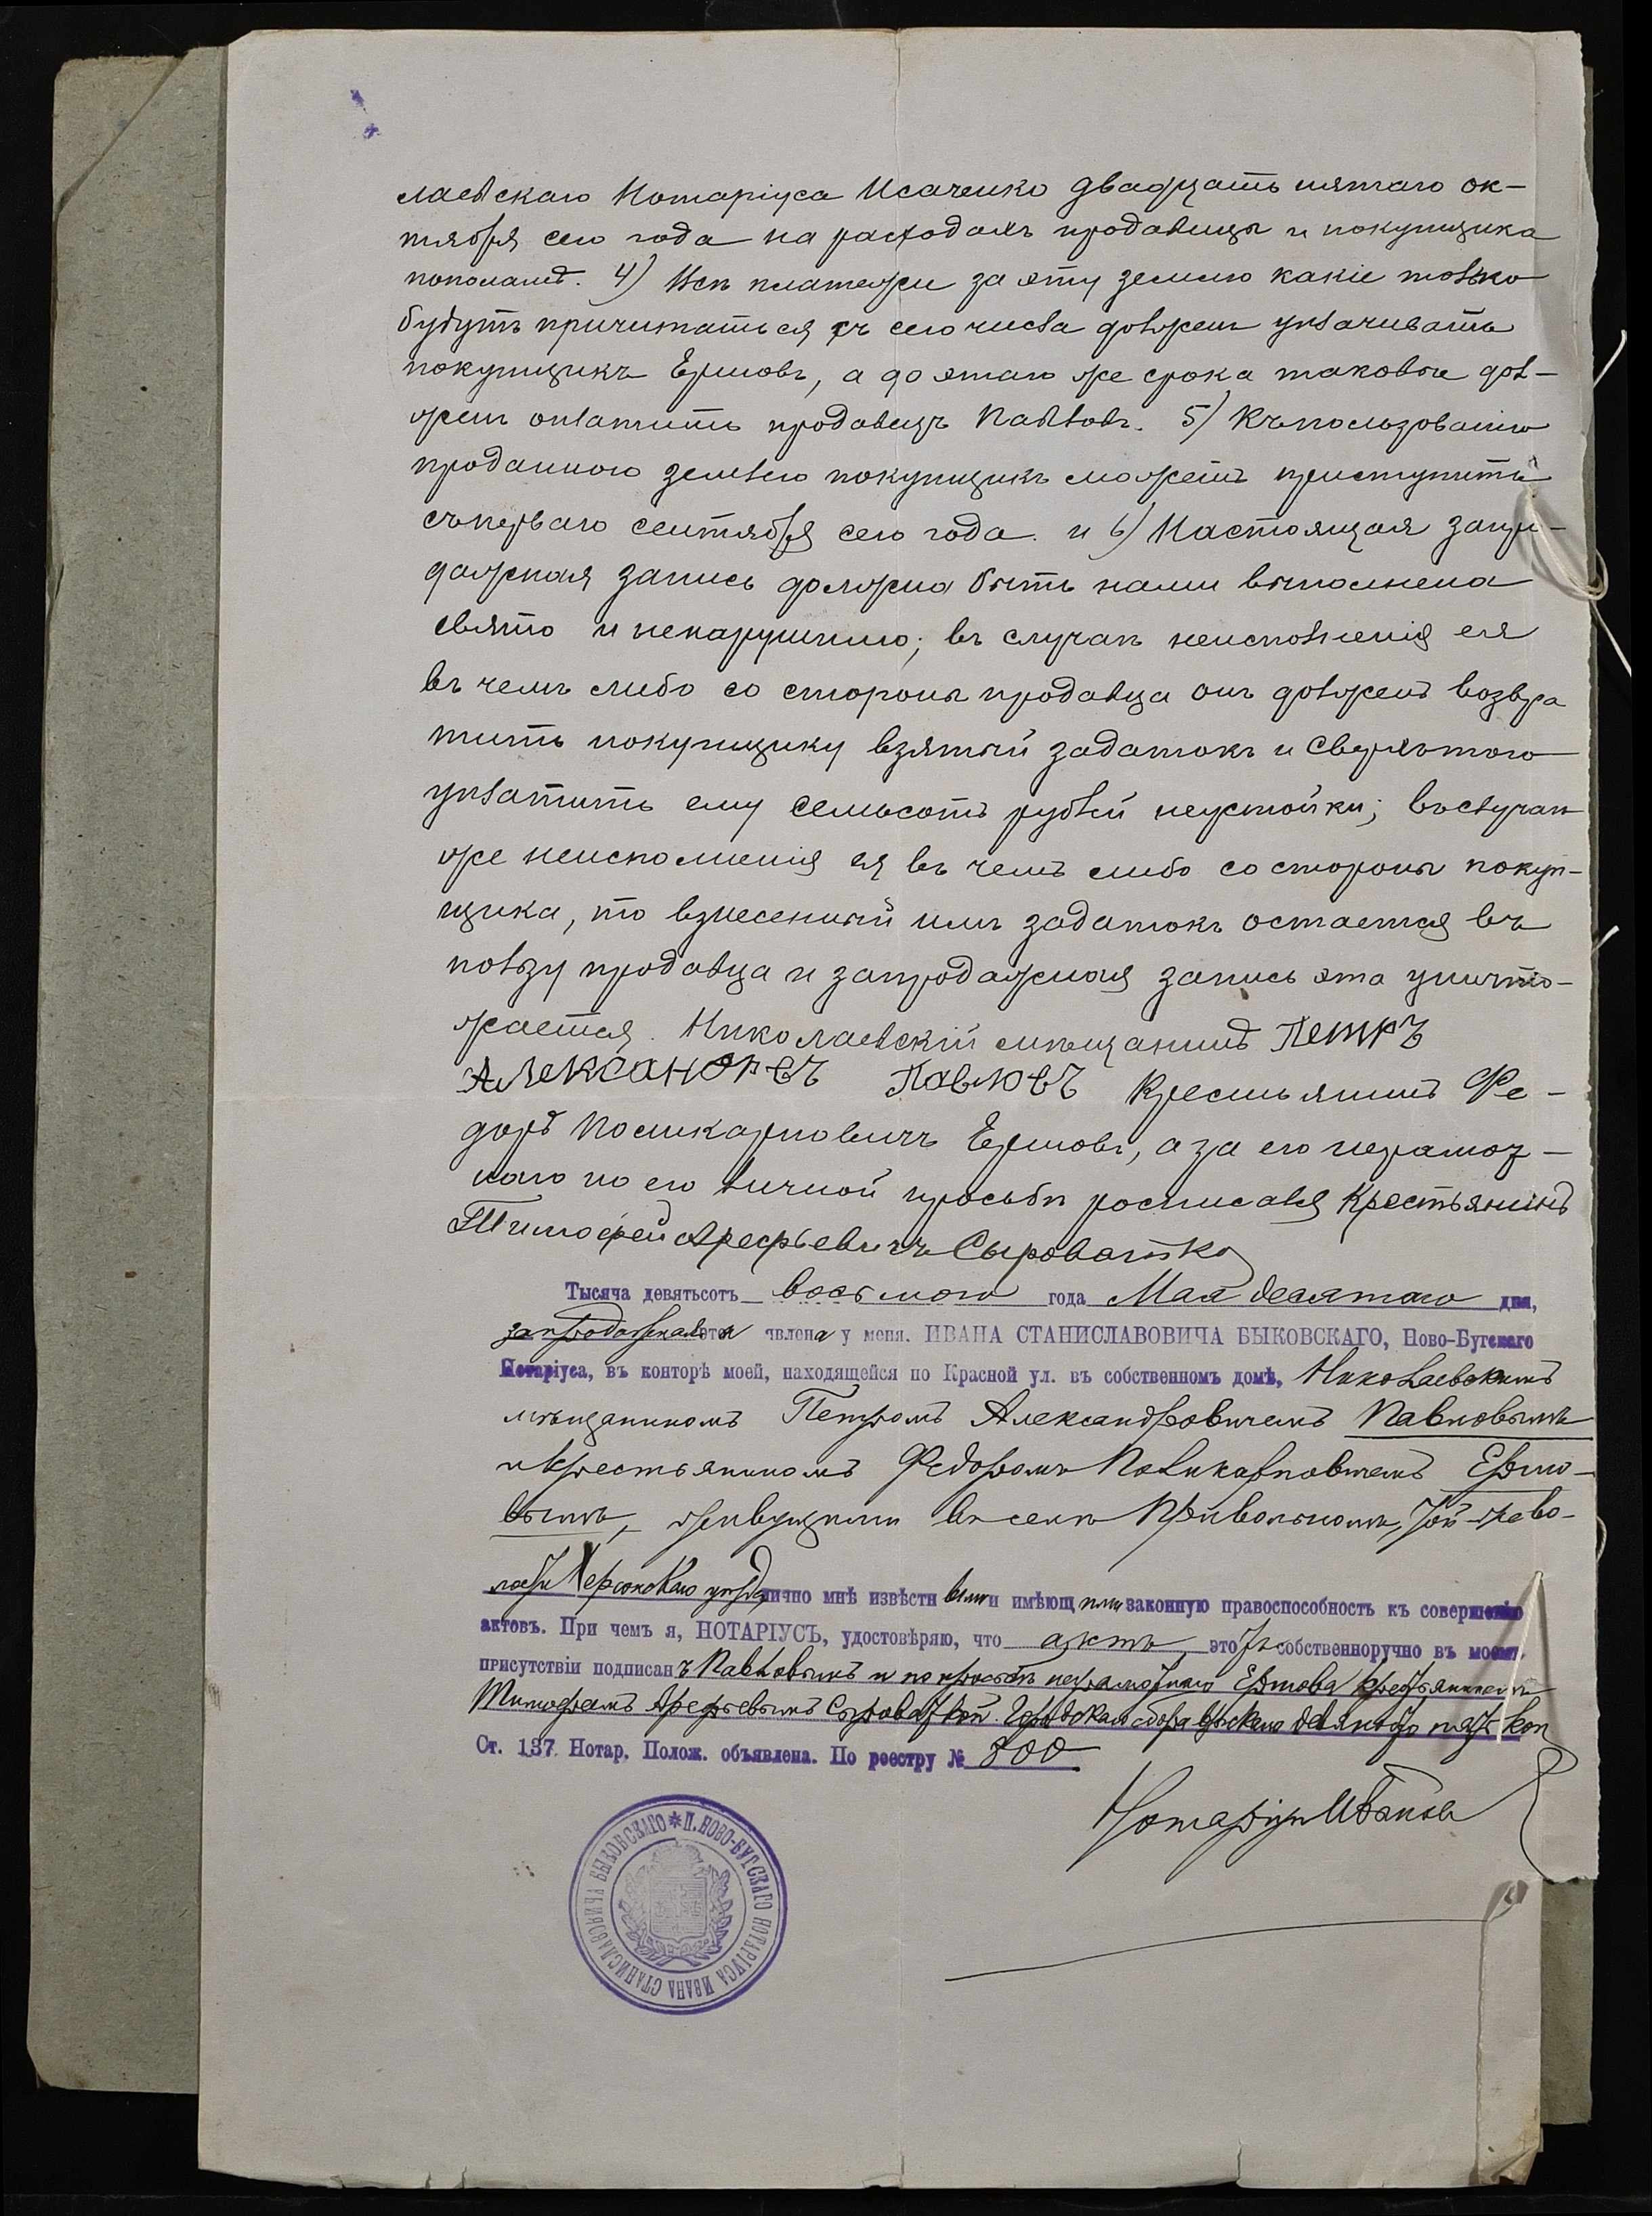 лаевскаго Нотаріуса Исаченко двадцать пятаго ок-
тября сего года на расходахъ продавца и покупщика
пополамъ. 4) Всѣ платежи за эту землю какіе только
будутъ причитаться съ сего числа долженъ уплачивать
покупщикъ Ермовъ, а до этаго же срока таковые дол-
женъ оплатить продавецъ Павловъ. 5) Къ пользованію
проданною землею покупщикъ можетъ приступить
съ перваго сентября сего года. и 6) Настоящая запро-
дажная запись должна быть нами выполнена
свято и ненарушимо; въ случаѣ неисполненія ея
въ чемъ либо со стороны продавца онъ долженъ возвра
тить покупщику взятый задатокъ и сверхъ того
уплатить ему семьсотъ рублей неустойки; въ случаѣ
же неисполненія ея въ чемъ либо со стороны покуп-
щика, то взнесенный имъ задатокъ остается въ
пользу продавца и запродажная запись эта уничто-
жается. Николаевскій мѣщанинъ Петръ
Александръвъ Павловъ Крестьянинъ Фе-
доръ Поликарповичъ Ермовъ, а за его неграмот-
наго по его личной просьбѣ росписался Крестьянинъ
Тимофей Арефьевичъ Сыроватко
Тысяча девятьсотъ восьмого года Мая десятаго дня,
запродажная эта явлена у меня. ИВАНА СТАНИСЛАВОВИЧА БЫКОВСКАГО, Ново-Бугскаго
Нотаріуса, въ конторѣ моей, находящейся по Красной ул. въ собственномъ домѣ, Николаевскимъ
мѣщаниномъ Петромъ Александровичемъ Павловымъ
и крестьяниномъ Федоромъ Поликарповичемъ Ермо-
вымъ, живущими въ селѣ Привольномъ, той-же во-
лости Херсонскаго уѣзда, лично мнѣ извѣстными и имѣющими законную правоспособность къ совершенію
актовъ. При чемъ я, НОТАРІУСЪ, удостовѣряю, что актъ этотъ собственноручно въ моемъ
присутствіи подписанъ Павловымъ и по просьбѣ неграмотнаго Ермова крестьяниномъ
Тимофеемъ Арефьевымъ Сыроваткой. Городского сбора взыскано девяносто пять коп
Ст. 137 Нотар. Полож. объявлена. По реестру № 800
Нотаріусъ
П. НОВО-БУГСКАГО НОТАРІУСА ИВАНА СТАНИСЛАВОВИЧА БЫКОВСКАГО